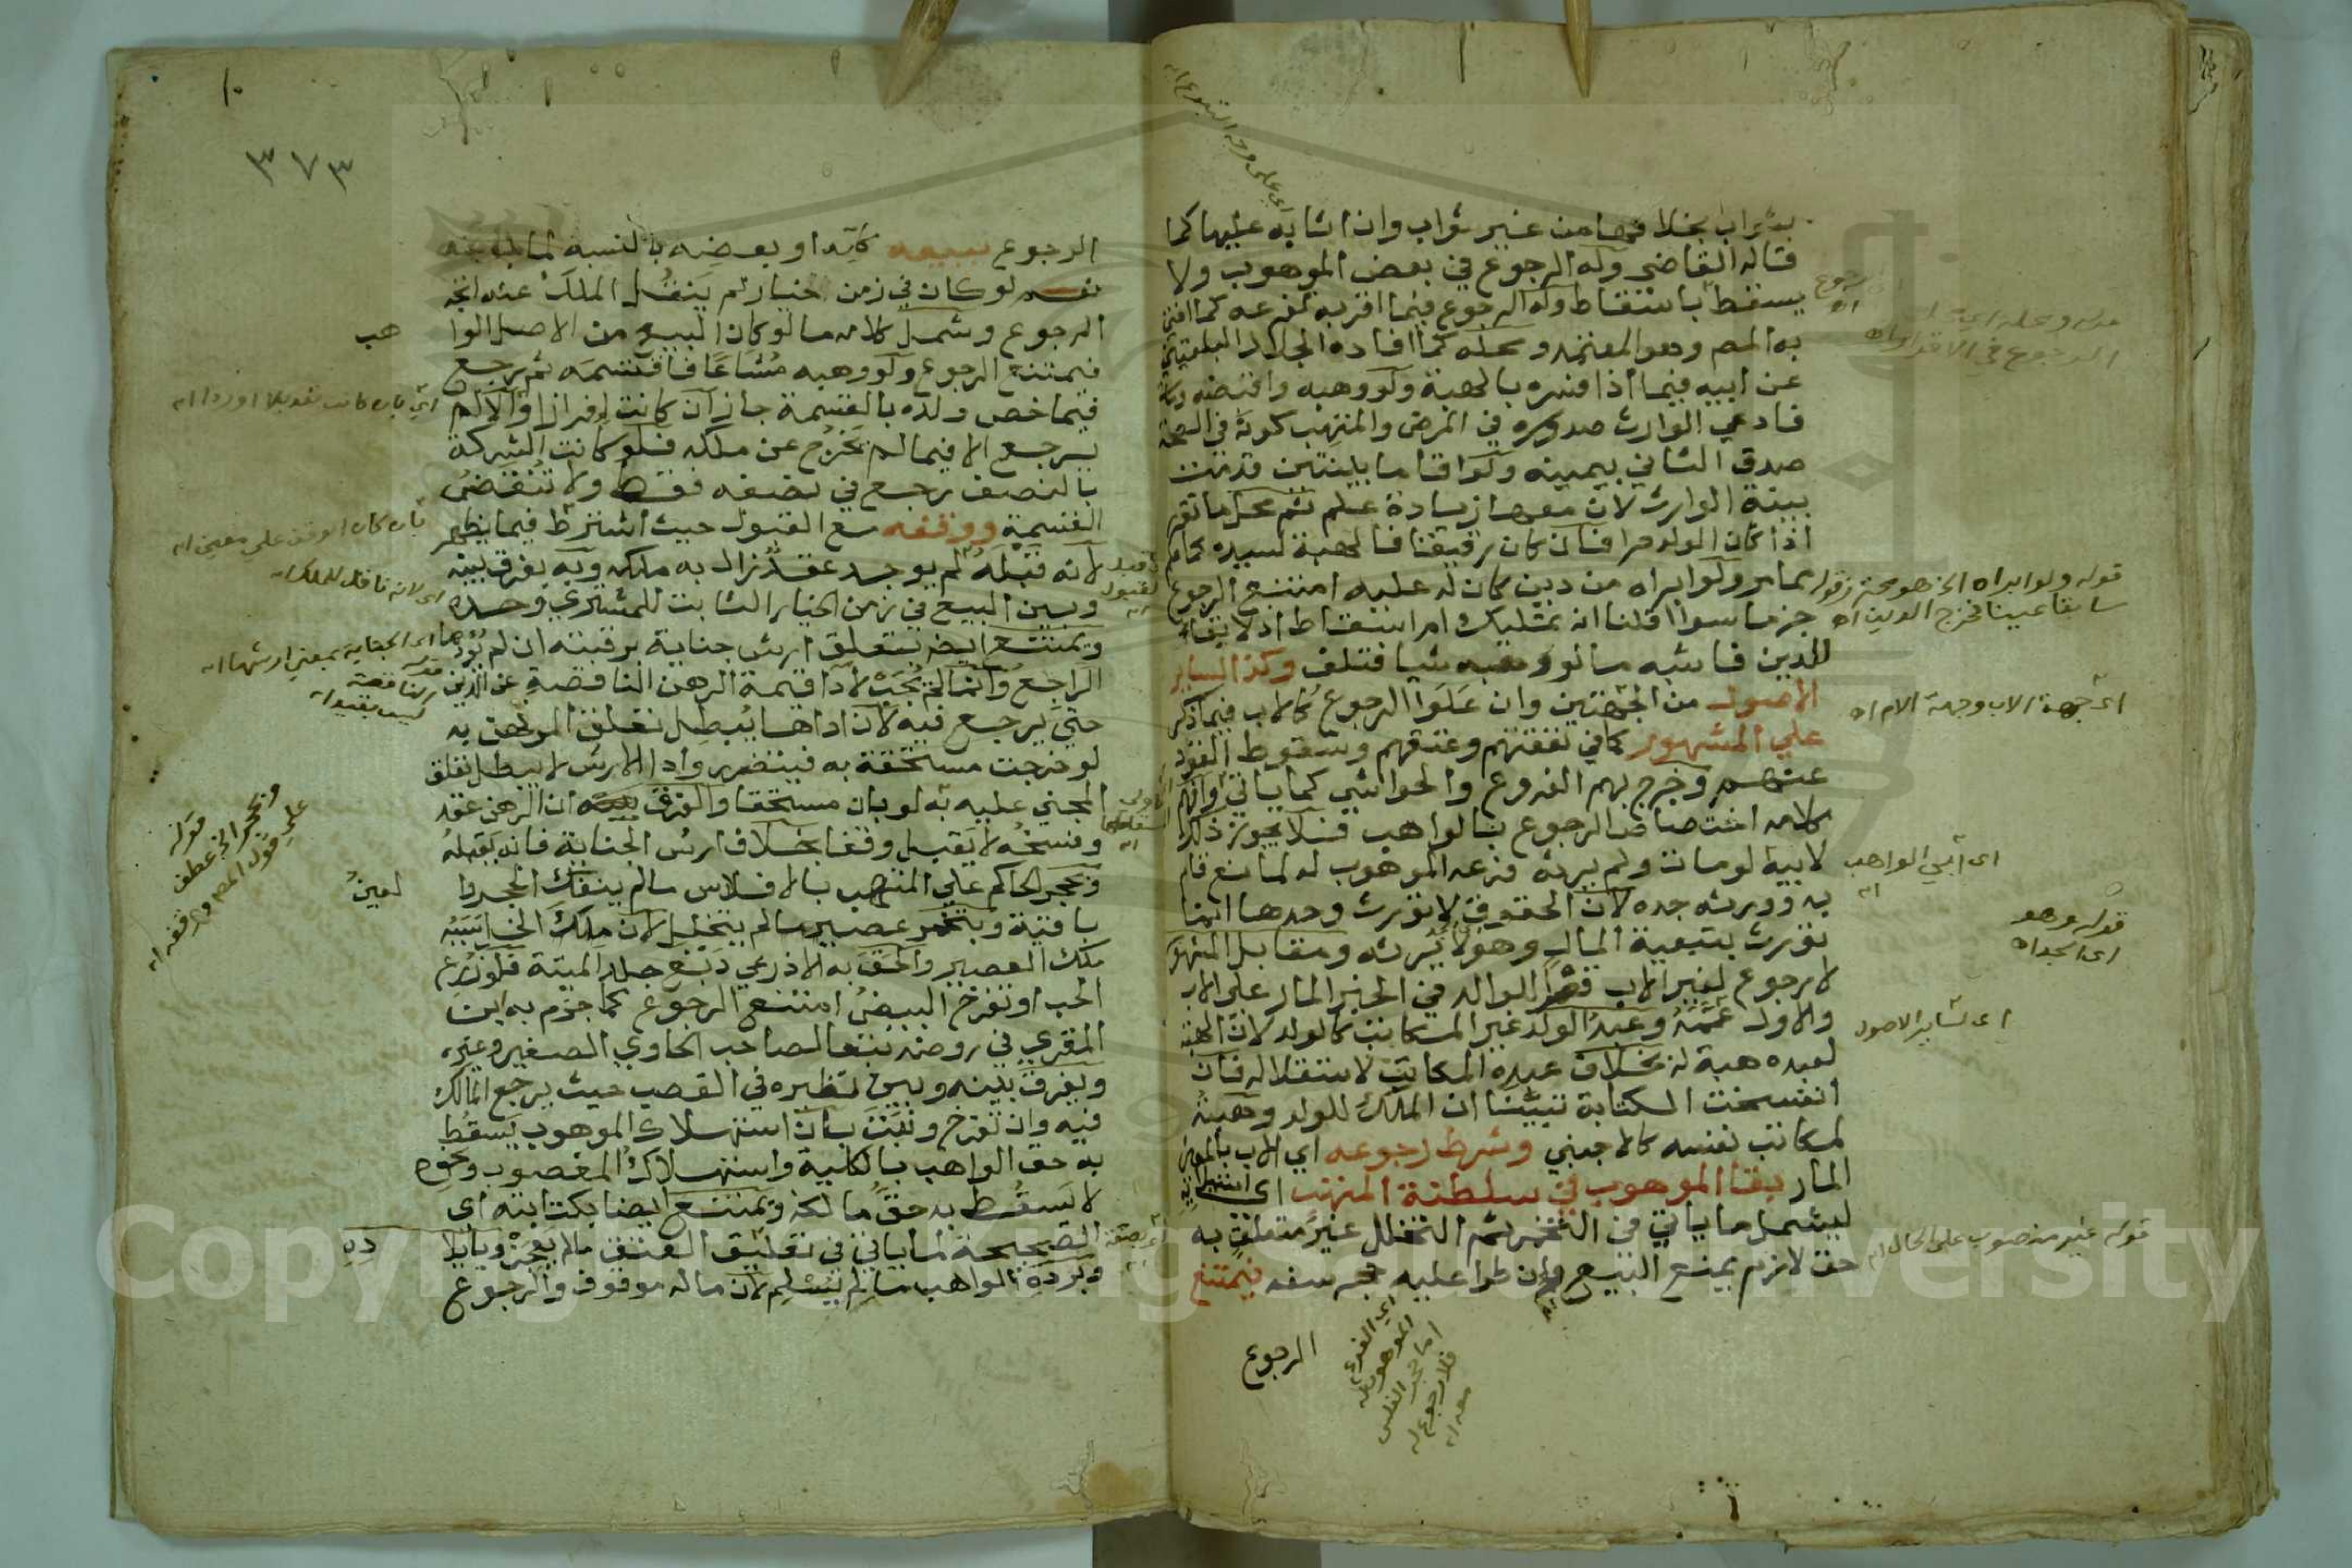 بثواب بخلافها من غير ثواب وان اثابه عليها كما
قاله القاضي وله الرجوع في بعض الموهوب ولا
يسقط باسقاط وله الرجوع فيما اقر به لفرعه كما افتى
به المص وهو المعتمد ومحله كما افاده الجلال البلقيني
عن ابيه فيما اذا فسره بالهبة ولو وهبه واقبضه ومات
فادعى الوارث صدوره في المرض والمتهب كونه في الصحة
صدق الثاني بيمينه ولو اقاما بينتين قدمت
بينة الوارث لان معها زيادة علم ثم محل ما تقرر
اذا كان الولد حرا فان كان رقيقا فالهبة لسيده كما علم
مما مر ولو ابراه من دين كان له عليه امتنع الرجوع
جزما سوا اقلنا انه تمليك ام اسقاط اذ لا بقاء
للدين فاشبه ما لو وهبه شيا فتلف وكذا لساير
الاصول من الجهتين وان علوا الرجوع كالاب فيما ذكر
علي المشهور كما في نفقتهم وعتقهم وسقوط القود
عنهم وخرج بهم الفروع والحواشي كما ياتي وافهم
كلامه اختصاص الرجوع بالواهب فلا يجوز ذلك
لابيه لو مات ولم يرثه فرعه الموهوب له لمانع قام
به وورثه جده لان الحقوق لا تورث وحدها انما
تورث بتبعية المال وهو لا يرثه ومقابل المشهور
لا رجوع لغير الاب قصرا للوالد في الخبر المار على الاب
والاول عممه وعبد الولد غير المكاتب كالولد لان الهبة
لعبده هبة له بخلاف عبده المكاتب لاستقلاله فان
انفسخت الكتابة تبينا ان الملك للولد وهبته
لمكاتب نفسه كالاجنبي وشرط رجوعه اي الاب بالمعنى
المار بقا الموهوب في سلطنة المتهب اي استيلائه
ليشمل ما ياتي في التخمر ثم التخلل غير متعلق به
حق لازم يمنع البيع وان طرا عليه حجر سفه فيمتنع
الرجوع
قوله ولو ابراه الخ هو محترز قوله
سابقا عينا فخرج الدين اه
اي جهة الاب وجهة الام اه
اي ابي الواهب
اه
قوله وهو
اي الجد اه
اي لساير الاصول
قوله غير منصوب على الحال اه
اي الفرع
الموهوب له
اما حجر الفلس
فلا رجوع له
معه اه
٣٧٣
١٠
الرجوع ببيعه كله او بعضه بالنسبة لما باعه
نعم لو كان في زمن خيار لم ينقل الملك عنه اتجه
الرجوع وشمل كلامه ما لو كان البيع من الاصل الوا
هب
فيمتنع الرجوع ولو وهبه مشاعا فاقتسمه ثم رجع
فيما خص ولده بالقسمة جاز ان كانت افرازا والا لم
يرجع الا فيما لم يخرج عن ملكه فلو كانت الشركة
بالنصف رجع في نصفه فقط ولا تنقض
القسمة ووقفه مع القبول حيث اشترط فيما يظهر
لانه قبله لم يوجد عقد زال به ملكه وبه يفرق بينه
وبين البيع في زمن الخيار الثابت للمشتري وحده
ويمتنع ايضا بتعلق ارش جناية برقبته ان لم يؤدها
الراجع وانما لم يجب لاداء قيمة الرهن الناقصة عن الدين
حتى يرجع فيه لان اداها يبطل تعلق المرتهن به
لو خرجت مستحقة به فيتضرر واداء الارش لا يبطل تعلق
المجني عليه به لو بان مستحقا والفرق ان الرهن عقد
وفسخه لا يقبل وقفا بخلاف ارش الجناية فانه يقبله
وبحجر الحاكم علي المتهب بالافلاس ما لم ينفك الحجر وا
لعين
باقية وبتخمر عصير ما لم يتخلل لان ملك الخل سببه
ملك العصير والحق به الاذرعي دبغ جلد الميتة فلو زرع
الحب او تفرخ البيض امتنع الرجوع كما جزم به ابن
المقري في روضه تبعا لصاحب الحاوي الصغير وغيره
ويفرق بينه وبين نظيره في الغصب حيث يرجع المالك
فيه وان تفرخ ونبت بان استهلاك الموهوب يسقط
به حق الواهب بالكلية واستهلاك المغصوب ونحوه
لا يسقط به حق مالكه ويمتنع ايضا بكتابته اي
الصحيحة لما ياتي في تعليق العتق ما لم يعجز وبايلا
ده
وبردة الواهب ما لم يسلم لان ماله موقوف والرجوع
اي بان كانت تعديلا او ردا اه
بان كان الوقف على معين اه
اي لانه ناقل للملك اه
اي الجناية بمعنى ارشها اه
قوله
وبحجر الخ عطف
على قول المص ووقفه اه